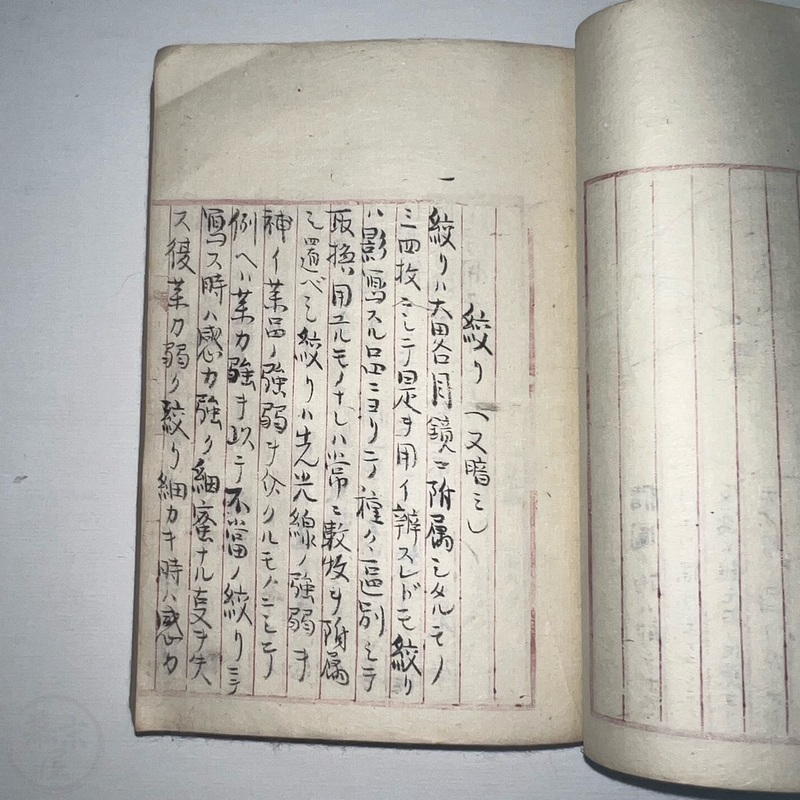 絞り (又暗ミ)
絞リハ大畧各目鏡ニ附属シタルモノ
三四枚ニシテ是ヲ用イ辨スレドモ絞リ
ハ影寫スル口四ニヨリテ種々區別シテ
取換用ユルモノナレハ常ニ数枚ヲ附属
シ置ベシ絞リハ光線ノ強弱ヲ
神イ薬品ノ強弱ヲ分クルモノニシテ
例ヘハ薬力強キ以テ不當ノ絞リニテ
寫ス時ハ感力強ク細蜜ナル支ヲ失
ス後薬力弱ク絞リ細カキ時ハ感力